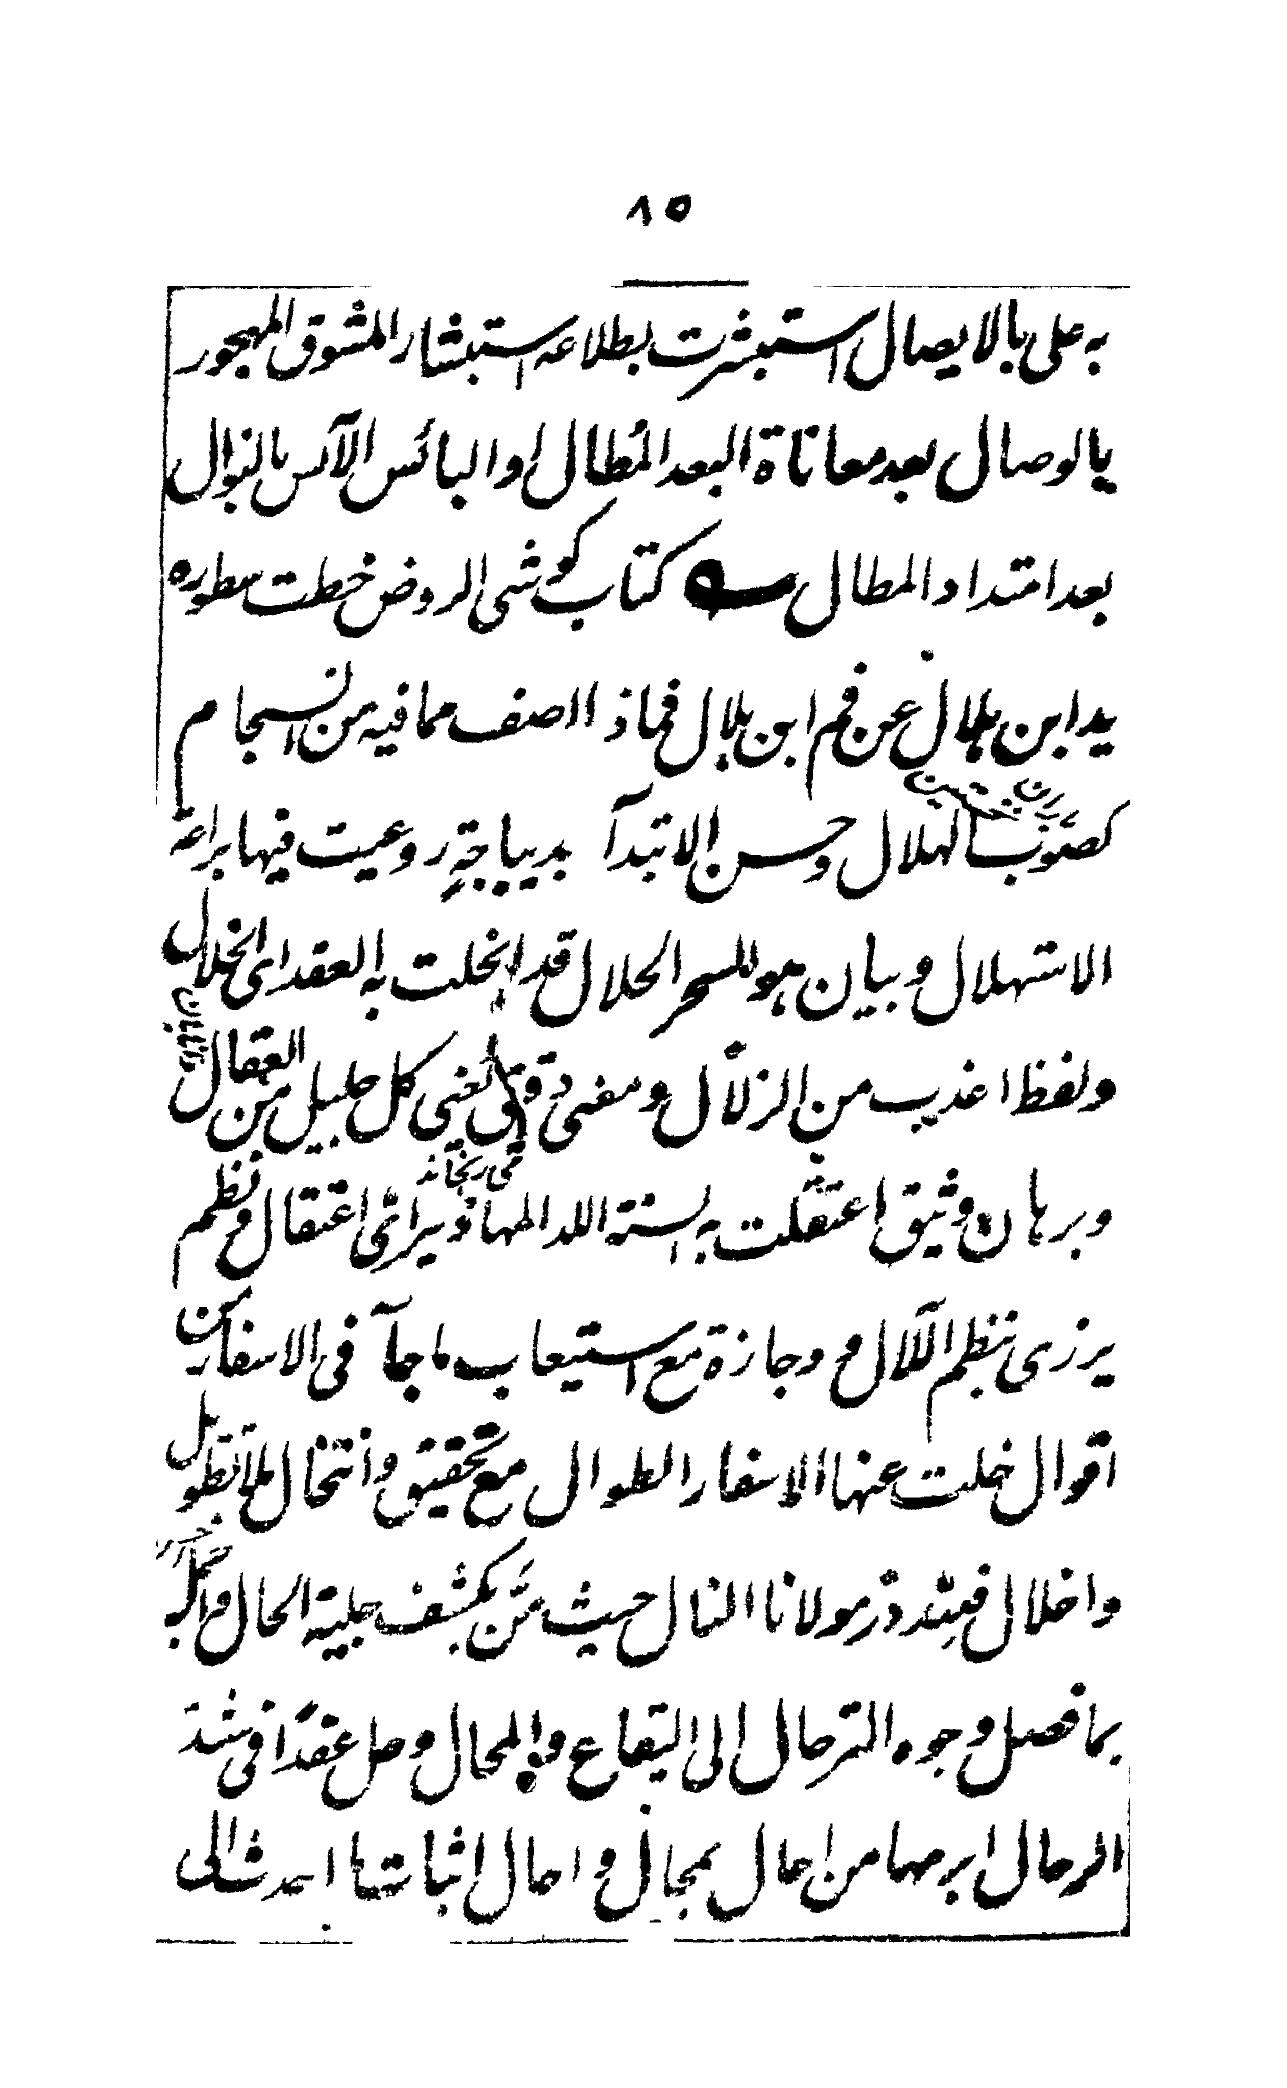 ٨٥
به على بالايصال استبشرت بطلاعه استبشار المشوق المهجور
بالوصال بعد معاناة البعد المُطال او البائس الآئس بالنوال
بعد امتداد المطال كتاب كوشى الروض خطت سطوره
يد ابن هلال عن فم ابن بلال فماذا اصف مما فيه من انسجام
كصَوْب الهلال وحسن الابتدآ بديباجةٍ روعيت فيها براعة
الاستهلال وبيان هو للسحر الحلال قد انحلت به العقد اى انحلال
ولفظ اعذب من الزلال ومغنى دقيق لغنى كل جليل من العقال
وبرهان وثيق اعتقلت به السنة اللد المهاذير اىّ اعتقال ونظم
يرزى بنظم اللآل وجازة مع استيعاب لما جآ فى الاسفار من
اقوال خلت عنها الاسفار الطوال مع تحقيق وانتخال بلا تطويل
واخلال فعِنْد درّ مولانا النال حيث مَنّ بكشف جلية الحال
بما فصل وجوه الترحال الى البقاع والمحال وحل عقدًا فى شد
الرحال ابرمها من احال بمجال واحال اثباتها احمد شالى